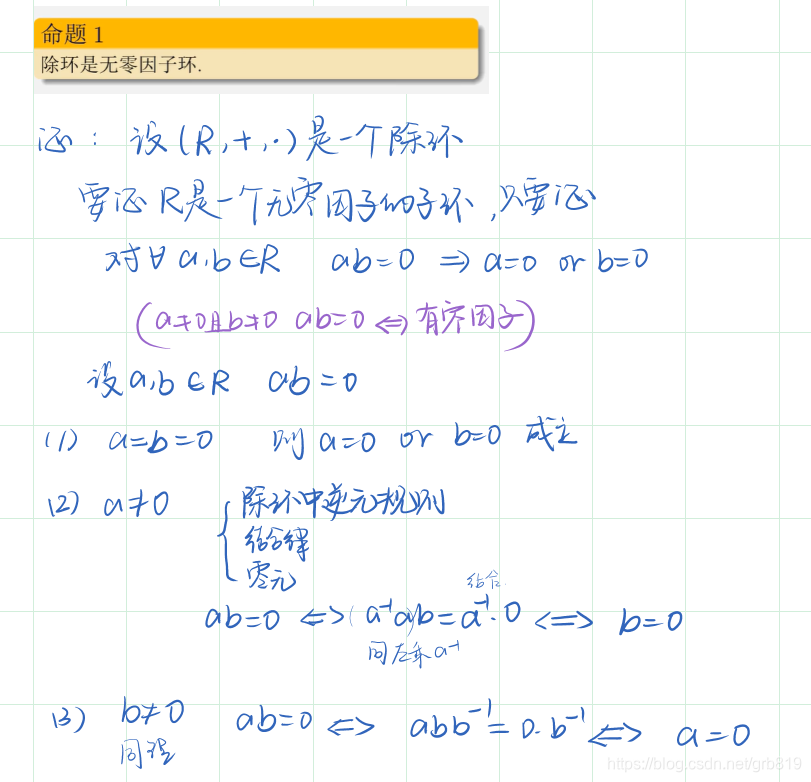 命题 1
除环是无零因子环.
证: 设(R,+,·)是一个除环
要证R是一个无零因子的子环,只要证
对∀a,b∈R ab=0 ⇒ a=0 or b=0
(a≠0且b≠0 ab=0 ⇔ 有零因子)
设a,b∈R ab=0
(1) a=b=0 则 a=0 or b=0 成立
(2) a≠0 { 除环中逆元规则
结合律
零元
结合
ab=0 ⇔ (a⁻¹a)b=a⁻¹·0 ⇔ b=0
同左乘a⁻¹
(3) b≠0 ab=0 ⇔ abb⁻¹=0·b⁻¹ ⇔ a=0
同理
https://blog.csdn.net/grb819